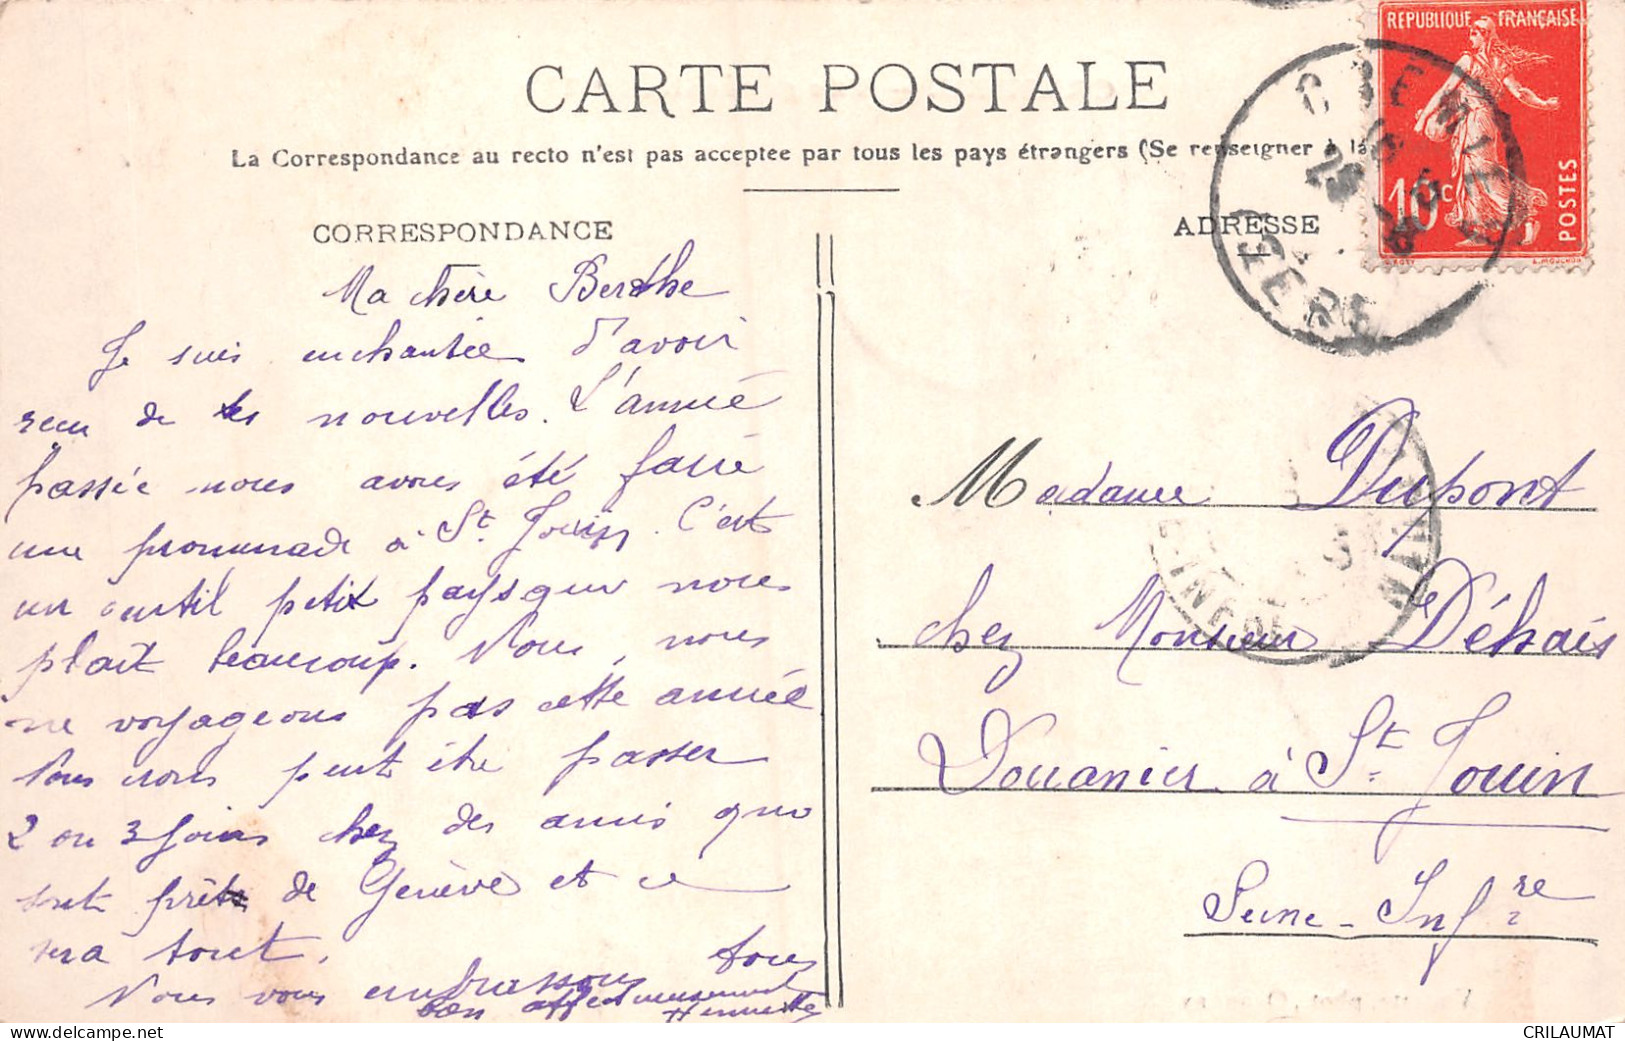 CARTE POSTALE
La Correspondance au recto n'est pas acceptee par tous les pays étrangers (Se renseigner à la
CORRESPONDANCE
Ma chère Berthe
Je suis enchantée d'avoir
recu de tes nouvelles. L'année
passée nous avons été faire
une promenade à St Jouin. C'est
un gentil petit pays que nous
plait beaucoup. Nous, nous
ne voyageons pas cette année
Nous irons peut être passer
2 ou 3 jours chez des amis qui
sont près de Genève et ce
sera tout.
Nous vous embrassons tous
bien affectueusement
Henriette
ADRESSE
REPUBLIQUE FRANÇAISE
10c
POSTES
O. ROTY
L. MOUCHON
CREMIEU
29
ISERE
Madame Dupont
chez Monsieur Déhais
Douanier à St Jouin
Seine-Infre
CRILAUMAT
www.delcampe.net